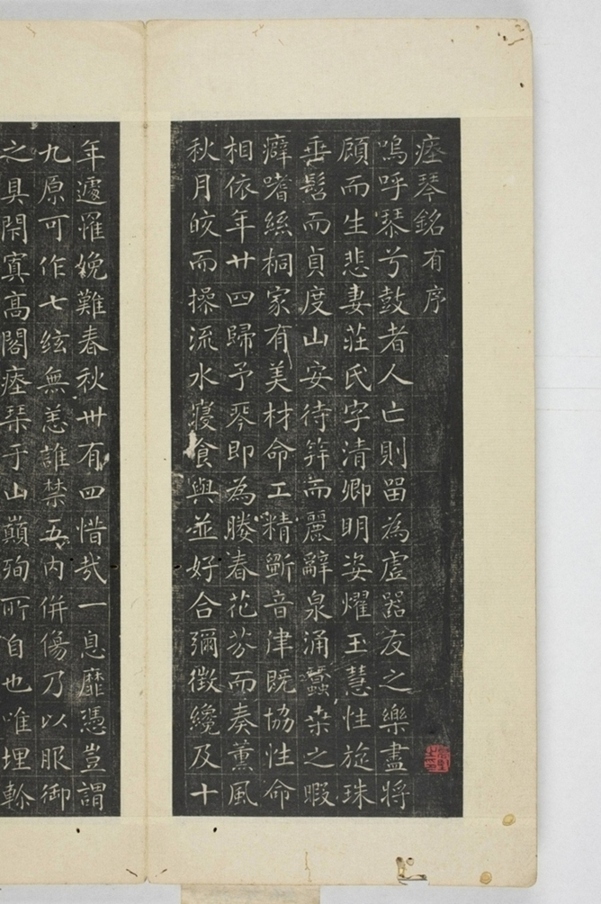 瘞琴銘有序
嗚呼琴兮鼓者人亡則畱為虛器友之樂盡將
顧而生悲妻莊氏字清卿明姿燿玉慧性旋珠
垂髫而貞度山安待笄而麗辭泉涌蠶桒之暇
癖嗜絲桐家有美材命工精斲音津既協性命
相依年廿四歸予琴即為媵春花芬而奏薰風
秋月皎而操流水寢食與並好合彌徵纔及十
年遽罹娩難春秋卅有四惜哉一息靡憑豈謂
九原可作七絃無恙誰禁五內併傷乃以服御
之具閑寘高閣瘞琴于山巔殉所自也唯埋軫